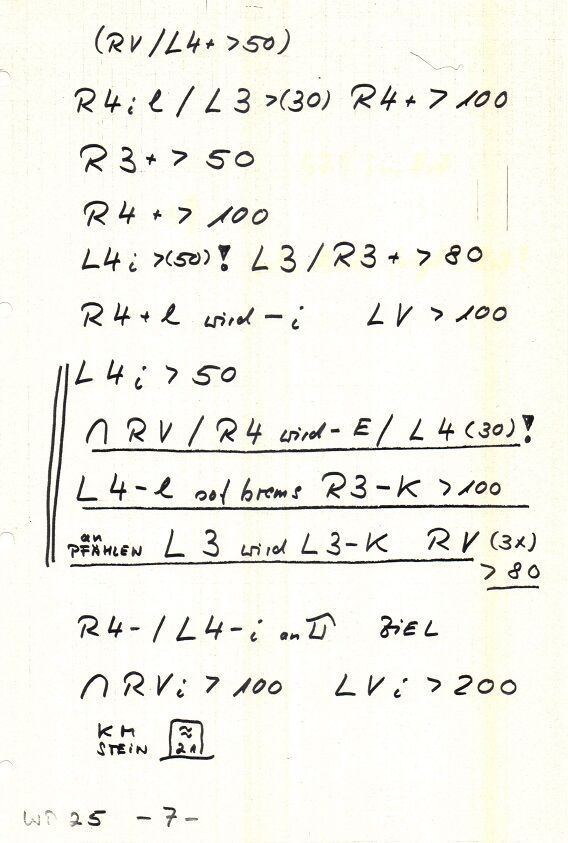 (RV/L4+ >50)
R4i l / L3 >(30) R4+ > 100
R3+ > 50
R4+ > 100
L4i >(50)! L3/R3+ > 80
R4+l wird -i LV > 100
L4i > 50
∩ RV / R4 wird - E / L4 (30)!
L4-l sof brems R3-K > 100
an PFÄHLEN L3 wird L3-K RV (3x)
> 80
R4- / L4-i an ZIEL
∩ RVi > 100 LVi > 200
KM
STEIN ≈ 21
WP 25 -7-